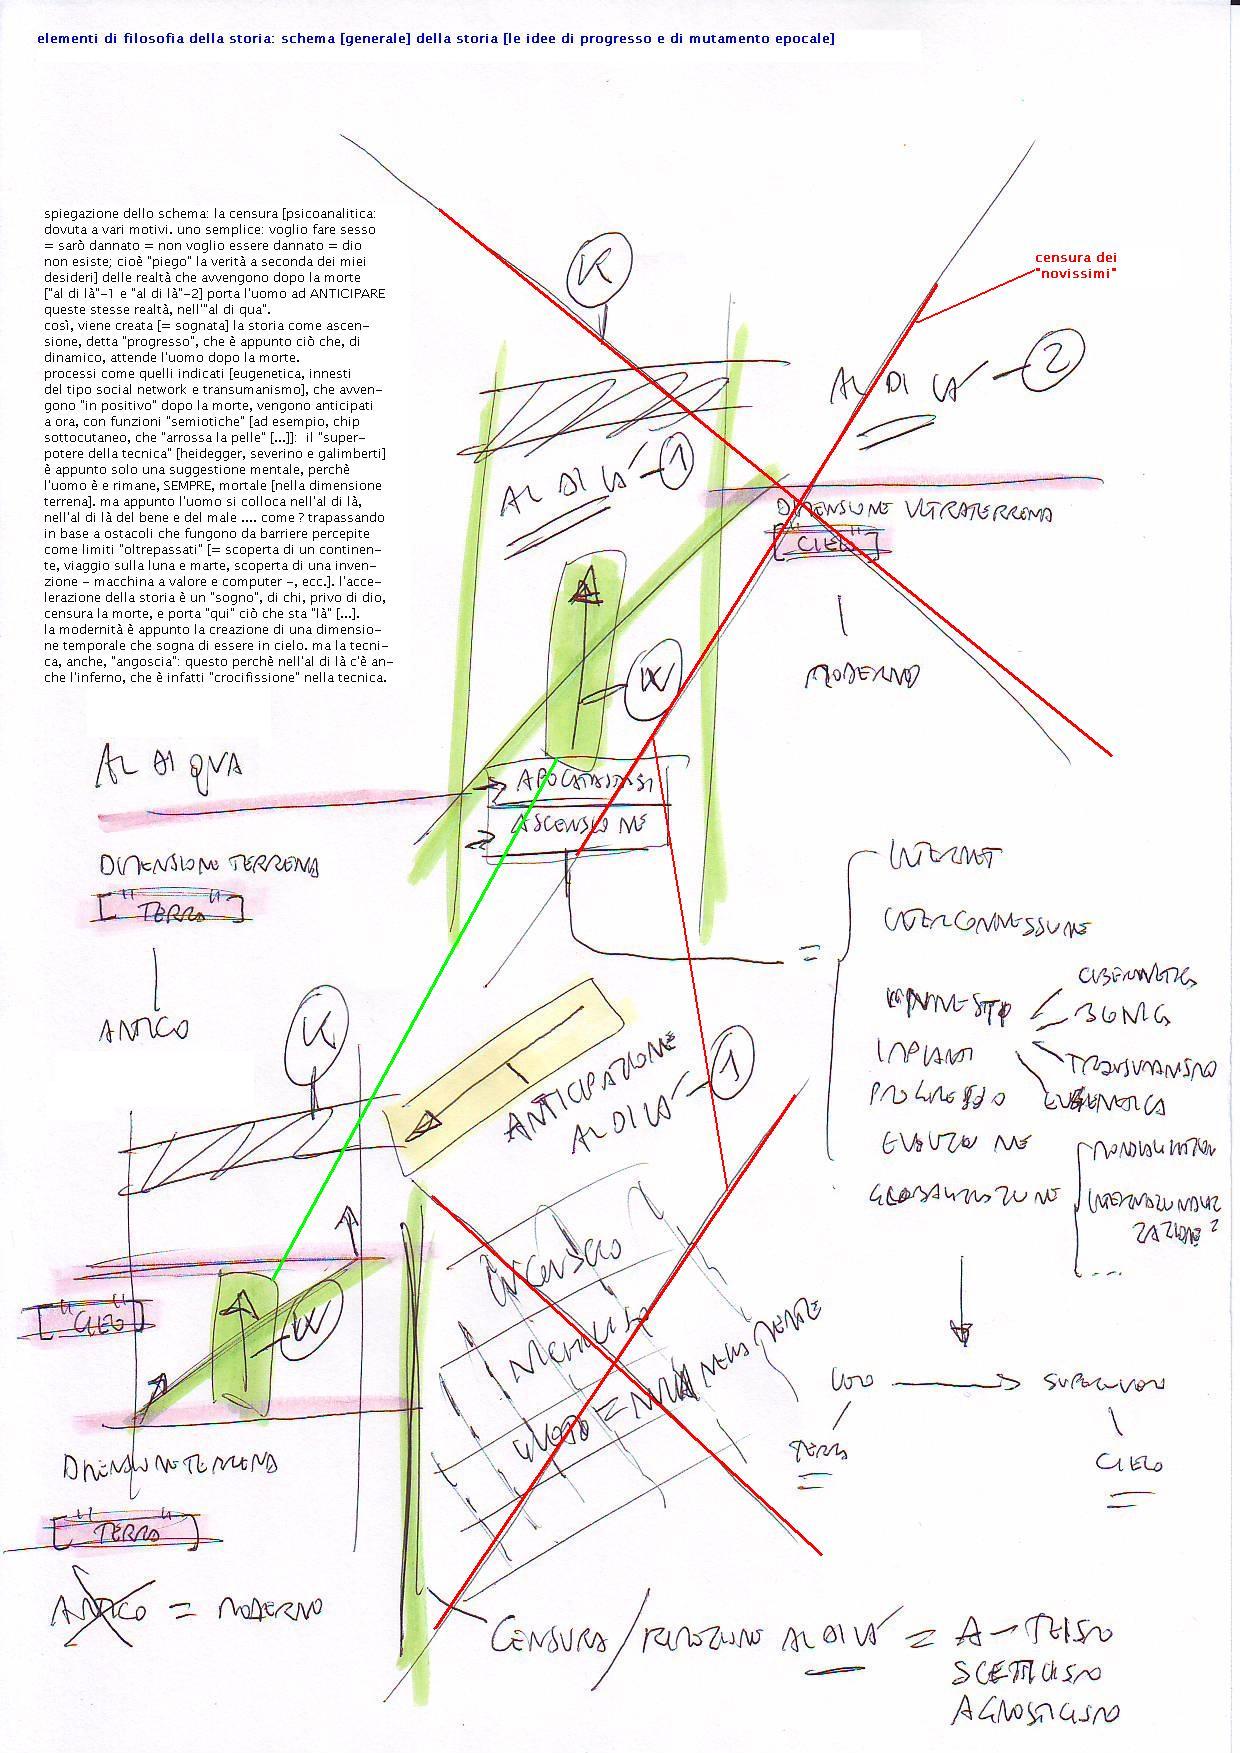 elementi di filosofia della storia: schema [generale] della storia [le idee di progresso e di mutamento epocale]
spiegazione dello schema: la censura [psicoanalitica:
dovuta a vari motivi. uno semplice: voglio fare sesso
= sarò dannato = non voglio essere dannato = dio
non esiste; cioè "piego" la verità a seconda dei miei
desideri] delle realtà che avvengono dopo la morte
["al di là"-1 e "al di là"-2] porta l'uomo ad ANTICIPARE
queste stesse realtà, nell'"al di qua".
così, viene creata [= sognata] la storia come ascen-
sione, detta "progresso", che è appunto ciò che, di
dinamico, attende l'uomo dopo la morte.
processi come quelli indicati [eugenetica, innesti
del tipo social network e transumanismo], che avven-
gono "in positivo" dopo la morte, vengono anticipati
a ora, con funzioni "semiotiche" [ad esempio, chip
sottocutaneo, che "arrossa la pelle" [...]]:  il "super-
potere della tecnica" [heidegger, severino e galimberti]
è appunto solo una suggestione mentale, perchè
l'uomo è e rimane, SEMPRE, mortale [nella dimensione
terrena]. ma appunto l'uomo si colloca nell'al di là,
nell'al di là del bene e del male .... come ? trapassando
in base a ostacoli che fungono da barriere percepite
come limiti "oltrepassati" [= scoperta di un continen-
te, viaggio sulla luna e marte, scoperta di una inven-
zione - macchina a valore e computer -, ecc.]. l'acce-
lerazione della storia è un "sogno", di chi, privo di dio,
censura la morte, e porta "qui" ciò che sta "là" [...].
la modernità è appunto la creazione di una dimensio-
ne temporale che sogna di essere in cielo. ma la tecni-
ca, anche, "angoscia": questo perchè nell'al di là c'è an-
che l'inferno, che è infatti "crocifissione" nella tecnica.
censura dei
"novissimi"
K
AL DI LÀ - 2
AL DI LÀ - 1
DIMENSIONE ULTRATERRENA
["CIELO"]
MODERNO
W
AL DI QUA
APOCATASTASI
ASCENSIONE
DIMENSIONE TERRENA
["TERRA"]
ANTICO
=
INTERNET
INTERCONNESSIONE
INNESTO
CIBERNETICA
BIONICA
TRANSUMANISMO
EUGENETICA
IMPIANTI
PROGRESSO
EVOLUZIONE
GLOBALIZZAZIONE
MONDIALIZZAZIONE
INTERNAZIONALIZ
ZAZIONE
K
ANTICIPAZIONE
AL DI LÀ - 1
["CIELO"]
W
UOMO
SUPERUOMO
TERRA
CIELO
DIMENSIONE TERRENA
["TERRA"]
ANTICO = MODERNO
CENSURA/RIMOZIONE AL DI LÀ = A-TEISMO
SCETTICISMO
AGNOSTICISMO